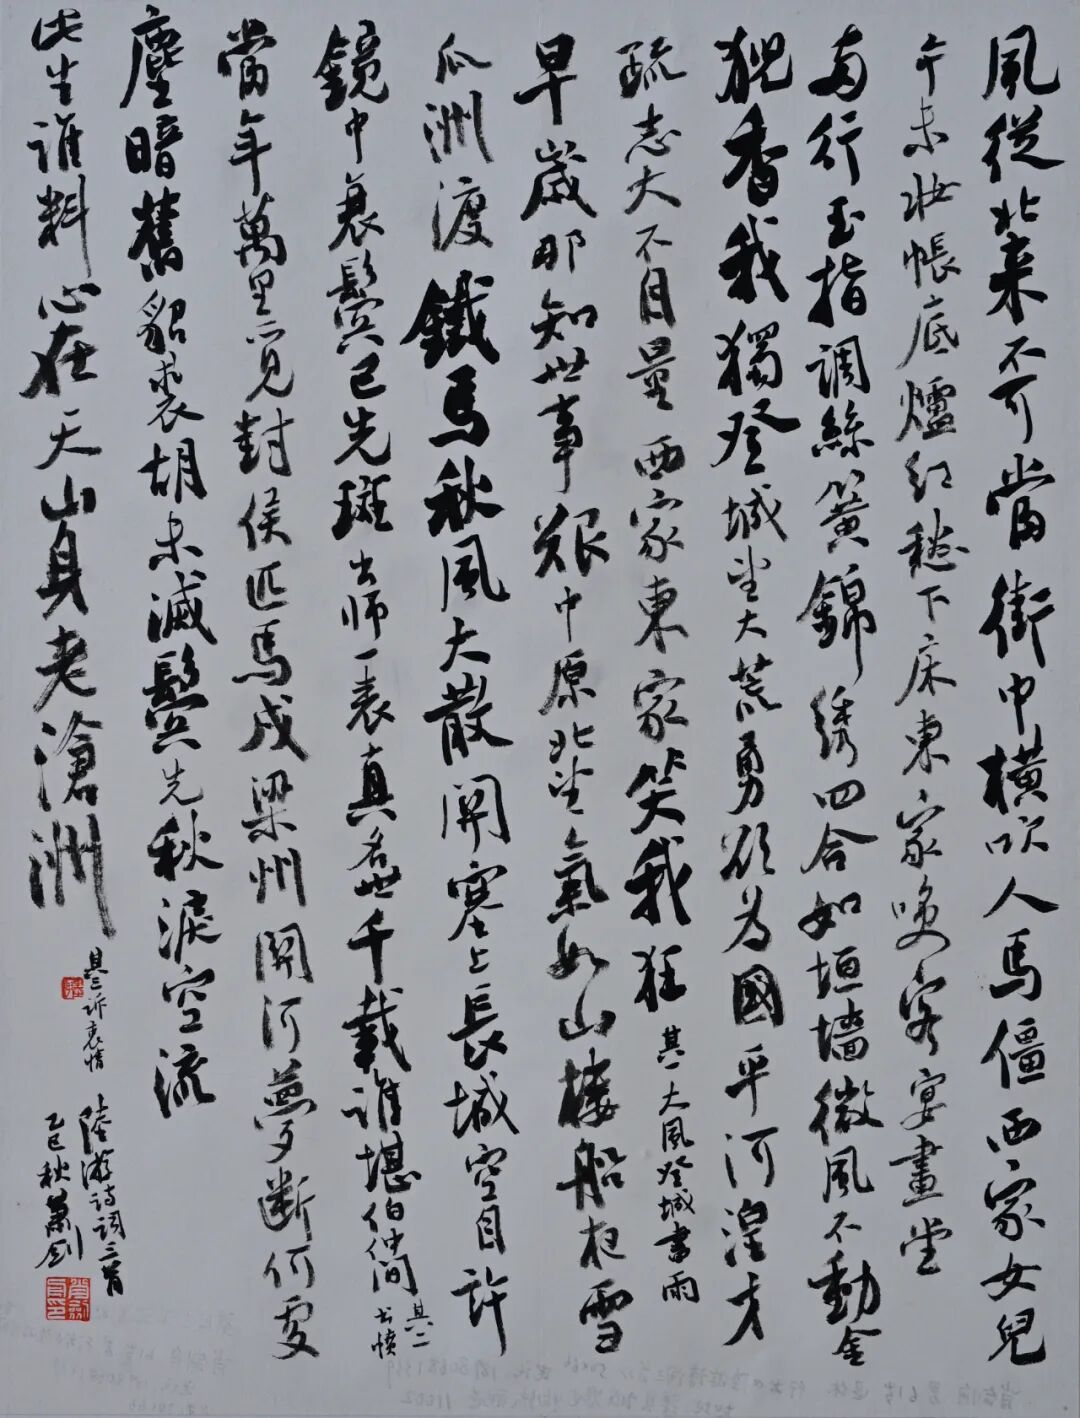 風從北來不可當街中橫吹人馬僵西家女兒
午未妝帳底爐紅愁下床東家喚客宴畫堂
两行玉指調絲簧錦绣四合如垣墙微風不動金
猊香我獨登城望大荒勇欲為國平河湟才
疏志大不自量西家東家笑我狂 其一大風登城書雨
早歲那知世事艱中原北望氣如山樓船夜雪
瓜洲渡鐵馬秋風大散關塞上長城空自許
鏡中衰鬢已先斑出師一表真名世千載誰堪伯仲間 其二书愤
當年萬里覓封侯匹馬戍梁州關河夢斷何處
塵暗舊貂裘胡未滅鬢先秋淚空流
此生誰料心在天山身老滄洲 其三訴衷情
陸游詩詞三首
乙巳秋萧剑